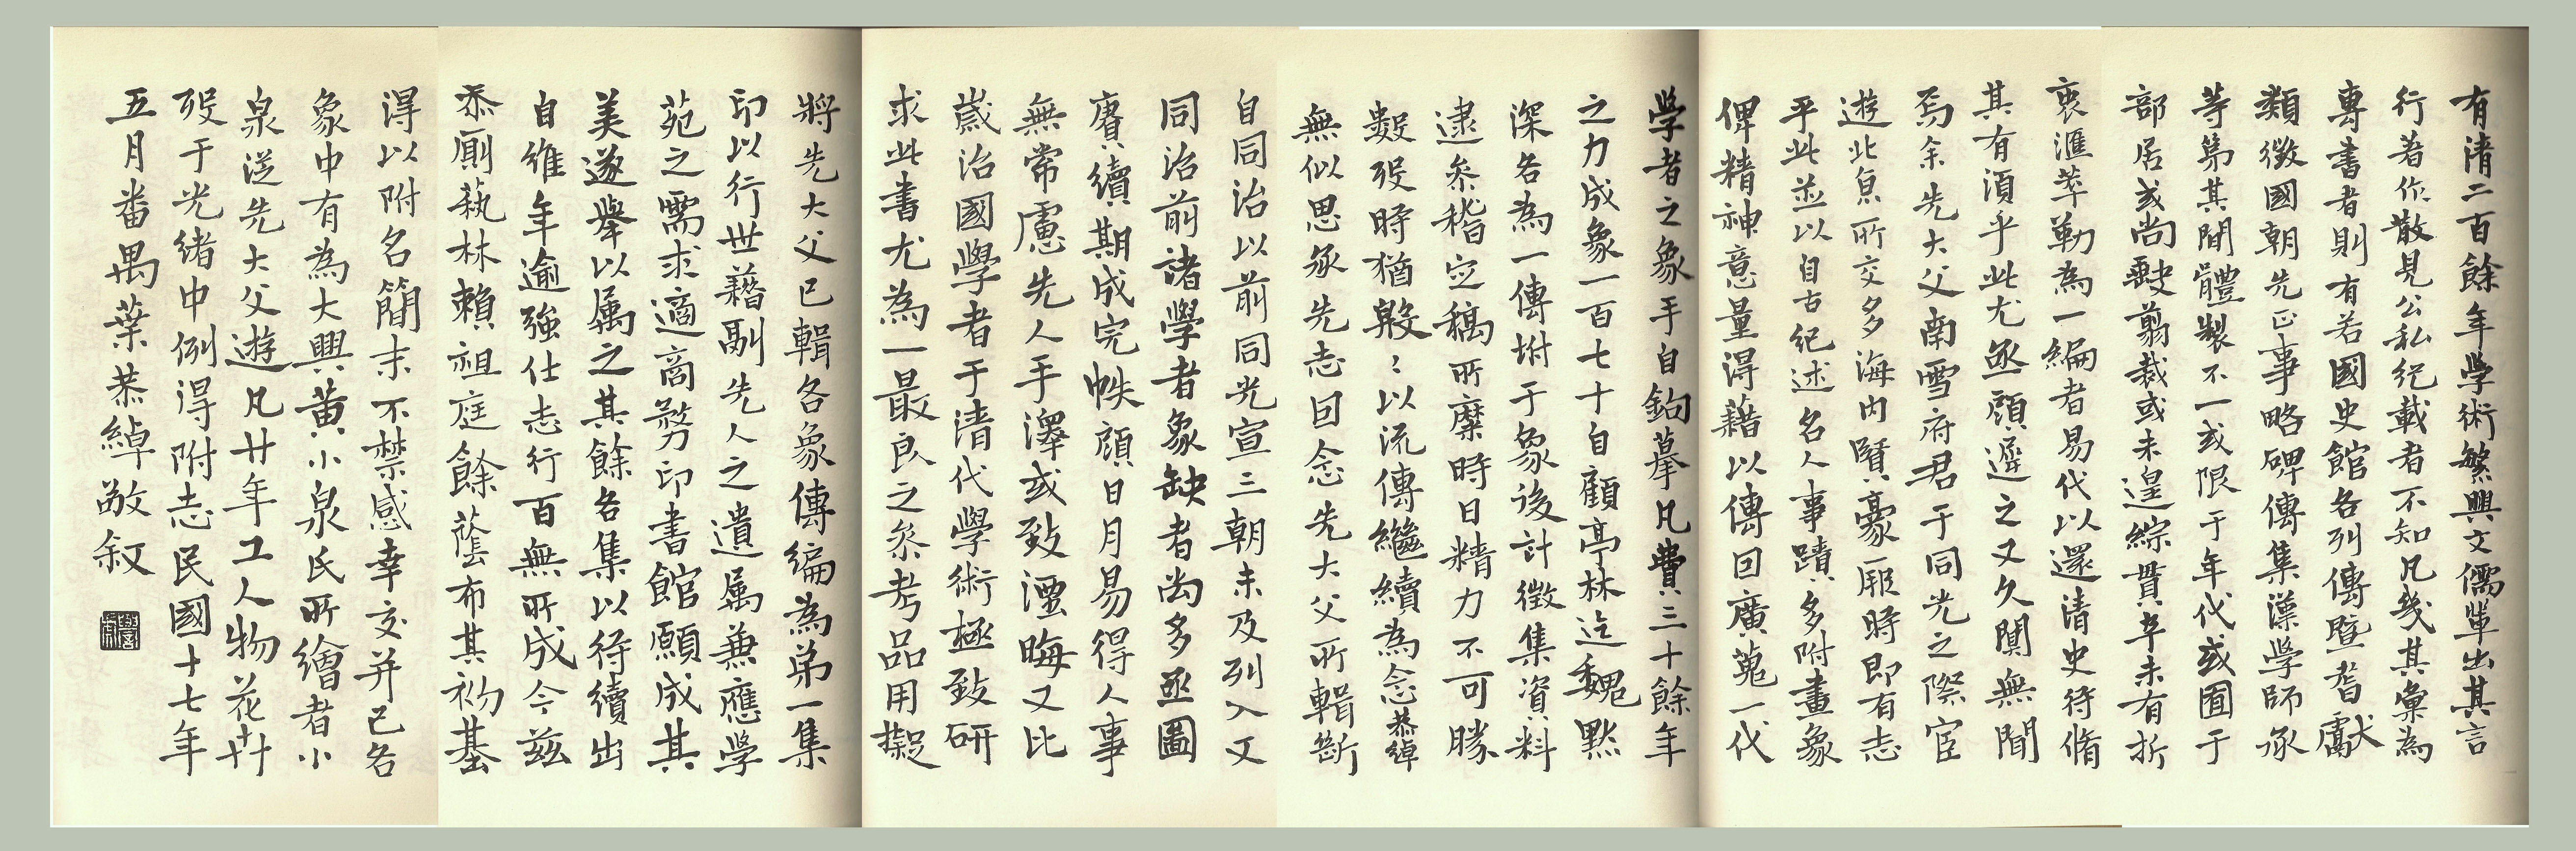 有清二百餘年學術繁興文儒輩出其言
行著作散見公私紀載者不知凡幾其彙為
專書者則有若國史館各列傳暨耆獻
類徵國朝先正事略碑傳集漢學師承
等篇其間體製不一或限于年代或囿于
部居或尚翔裁或未遑綜貫卒未有折
衷滙萃勒為一編者易代以還清史待脩
其有須乎此尤亟顧遲之又久闃無聞
焉余先大父南雪府君于同光之際宦
遊北京所交多海内賢豪厥時即有志
乎此並以自古紀述名人事蹟多附畫象
俾精神意量得藉以傳回廣蒐一代
學者之象手自鉤摹凡費三十餘年
之力成象一百七十自顧亭林迄魏默
深各為一傳坿于象後計徵集資料
逮叅稽定稿所糜時日精力不可勝
數歿時猶殷〻以流傳繼續為念恭綽
無似思承先志回念先大父所輯斷
自同治以前同光宣三朝未及列入又
同治前諸學者象缺者尚多亟圖
賡續期成完帙顧日月易得人事
無常慮先人手澤或致湮晦又比
歲治國學者于清代學術極致研
求此書尤為一最良之叅考品用擬
將先大父已輯各象傳編為第一集
印以行世藉副先人之遺属兼應學
苑之需求適商務印書館願成其
美遂舉以属之其餘各集以待續出
自維年逾強仕志行百無所成今茲
忝厠藝林賴祖庭餘蔭布其初基
得以附名簡末不禁感幸交并已名
象中有為大興黃小泉氏所繪者小
泉從先大父遊凡廿年工人物花卉
歿于光緒中例得附志民國十七年
五月番禺葉恭綽敬叙